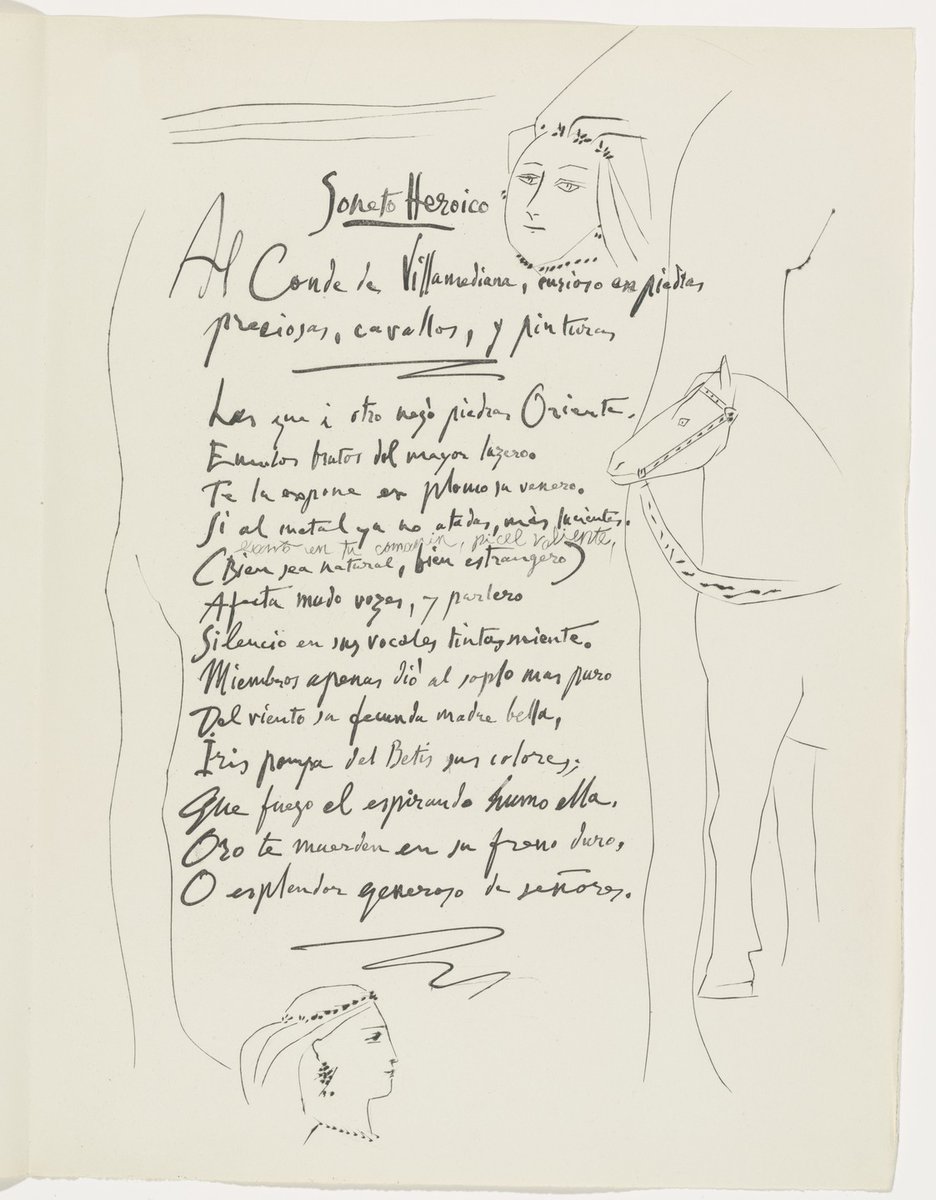 Soneto Heroico
Al Conde de Villamediana, curioso en piedras
preciosas, cavallos, y pinturas
Las que a otro negò piedras Oriente,
Emulos brutos del mayor luzero.
Te la expone en plomo su venero.
Si al metal ya no atadas, màs lucientes.
quanto en tu camarin, pincel valiente,
(Bien sea natural, bien estrangero)
Afecta mudo vozes, y parlero
Silencio en sus vocales tintas miente.
Miembros apenas dió al soplo mas puro
Del viento su fecunda madre bella,
Iris pompa del Betis sus colores;
Que fuego el espirando humo ella,
Oro te muerden en su freno duro,
O esplendor generoso de señores.